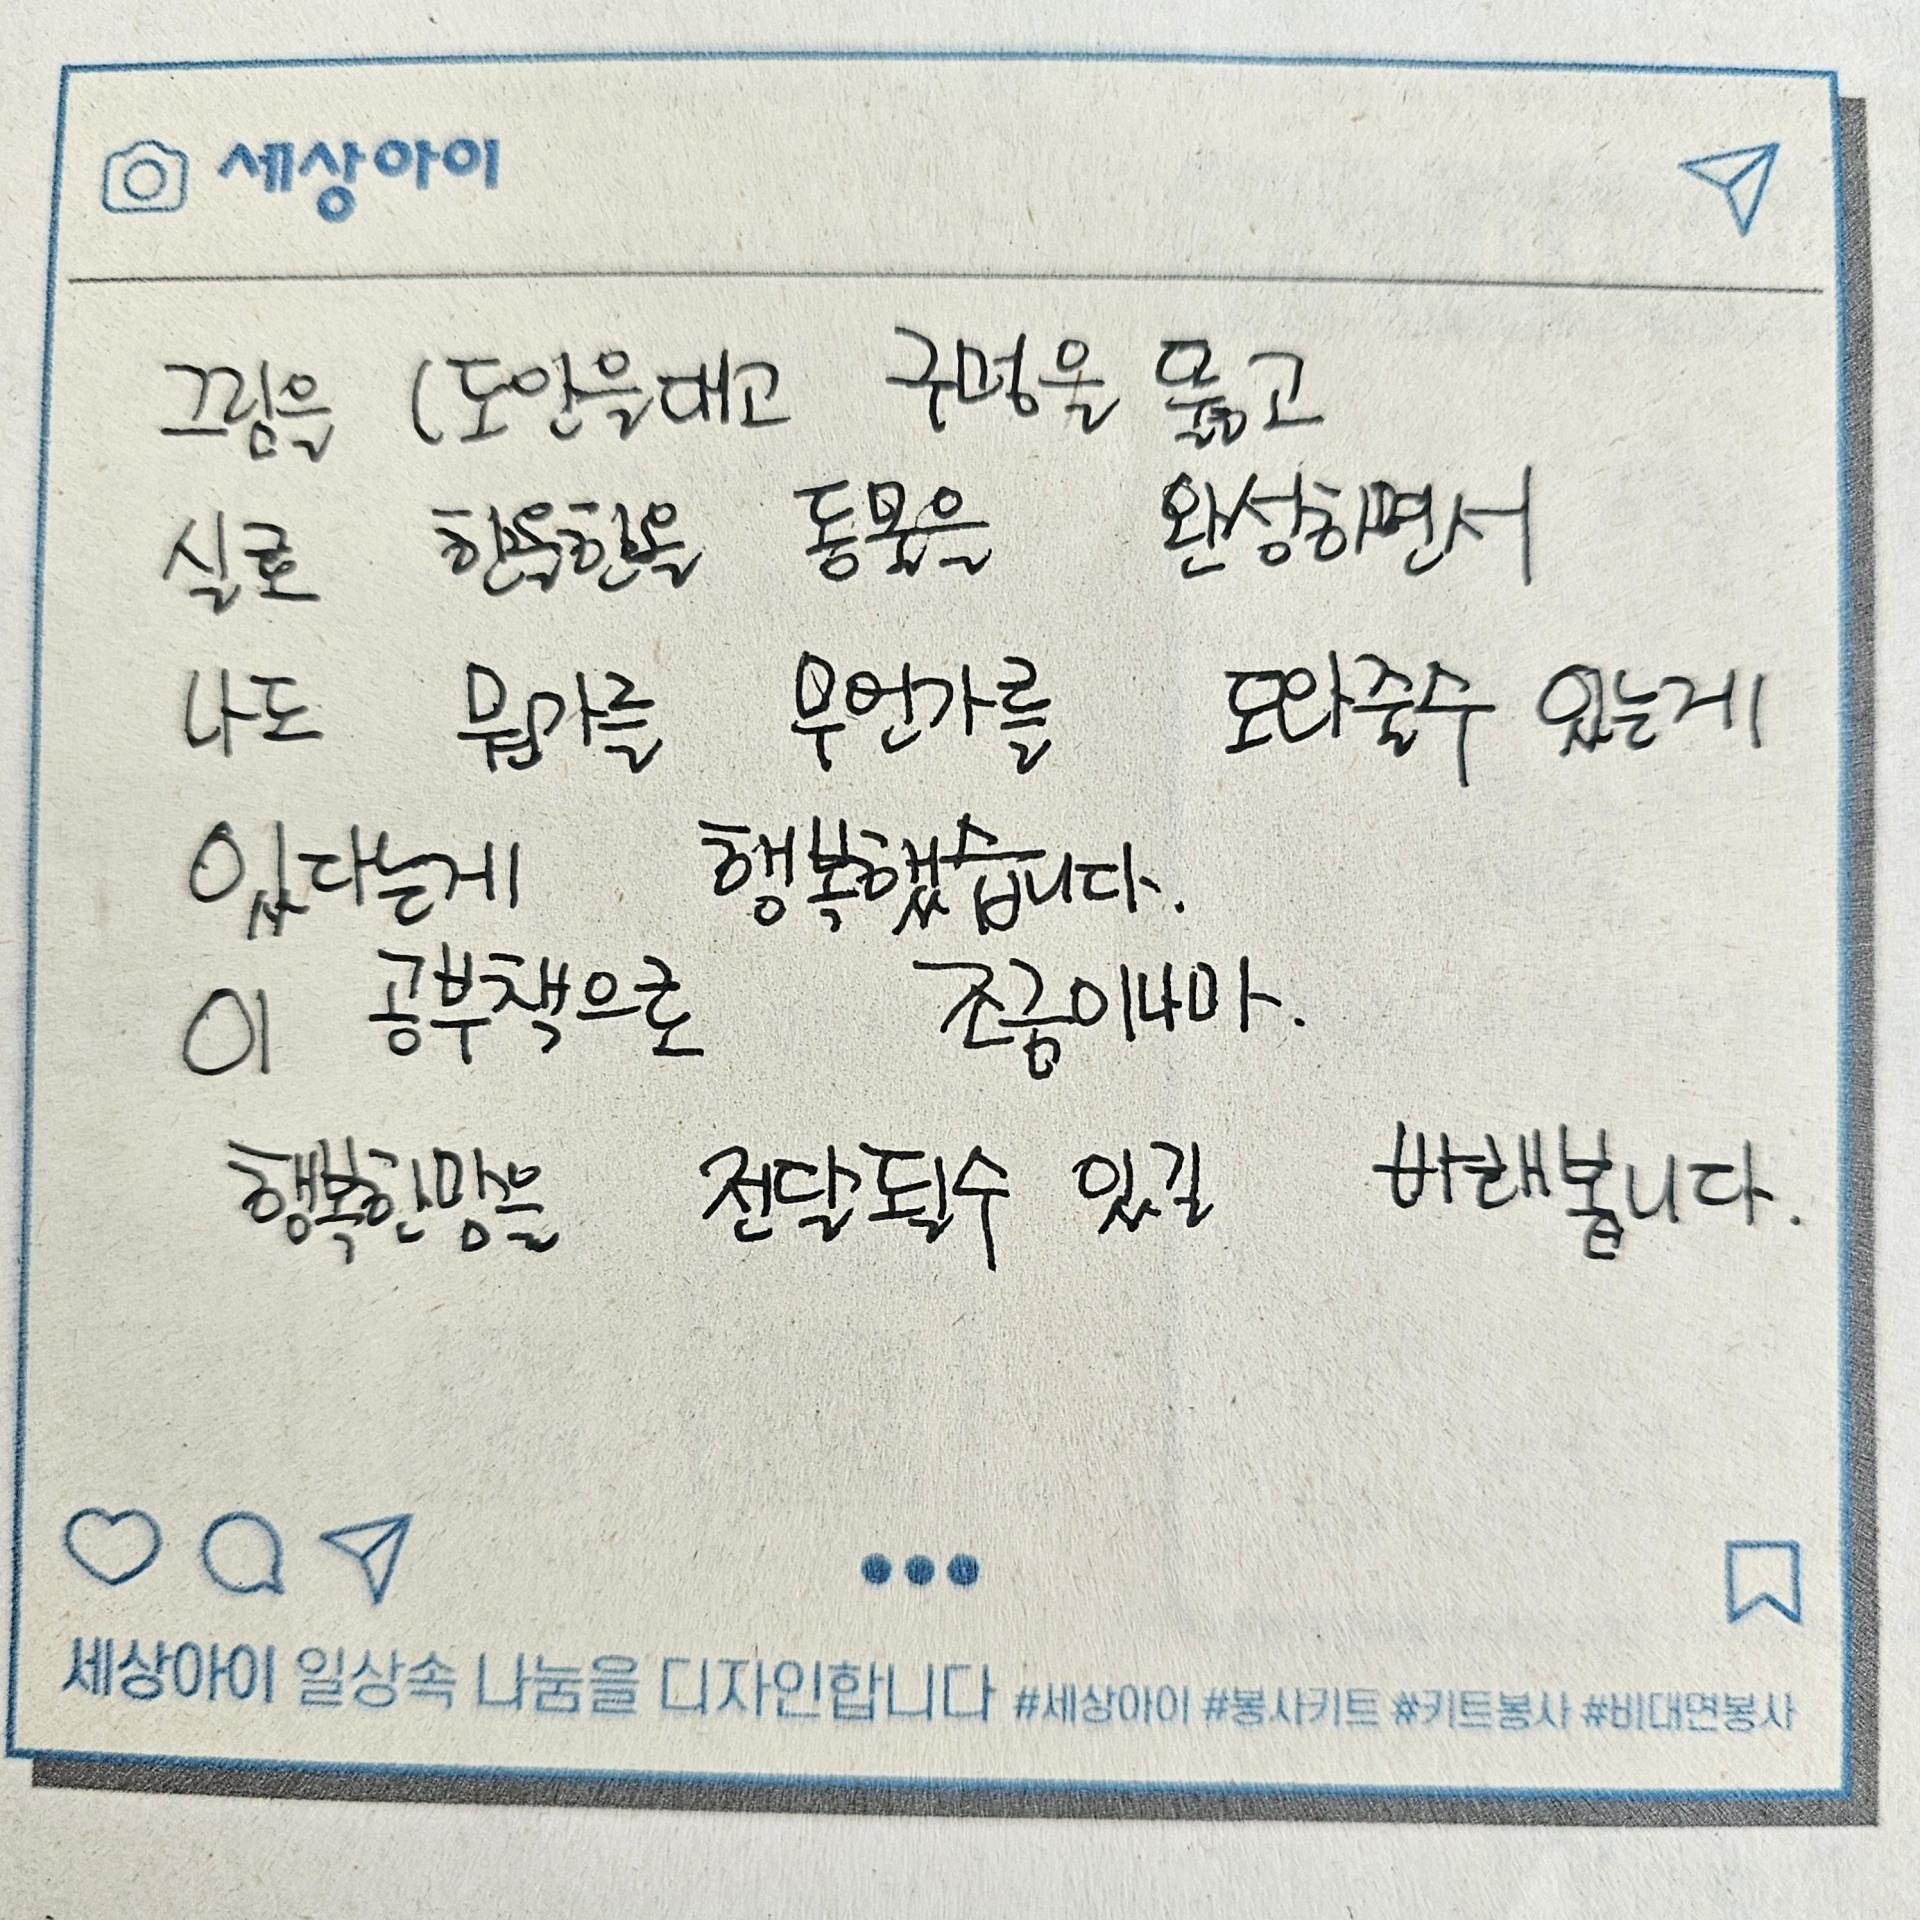 세상아이
그림을 (도안을대고 구멍을 뚫고
실로 한올한올 동물을 완성하면서
나도 뭔가를 무언가를 도와줄수 있는게
있다는게 행복했습니다.
이 공부책으로 조금이나마.
행복한맘을 전달될수 있길 바래봅니다.
세상아이 일상속 나눔을 디자인합니다 #세상아이 #봉사키트 #키트봉사 #비대면봉사